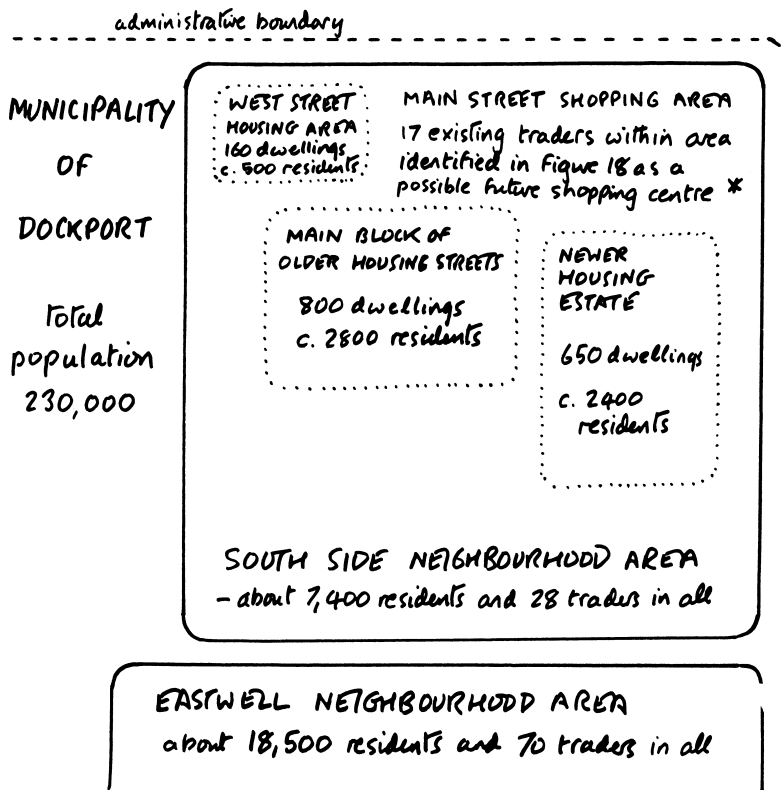 administrative boundary
MUNICIPALITY
OF
DOCKPORT
total
population
230,000
WEST STREET
HOUSING AREA
160 dwellings
c. 500 residents
MAIN STREET SHOPPING AREA
17 existing traders within area
identified in Figure 18 as a
possible future shopping centre *
MAIN BLOCK OF
OLDER HOUSING STREETS
800 dwellings
c. 2800 residents
NEWER
HOUSING
ESTATE
650 dwellings
c. 2400
residents
SOUTH SIDE NEIGHBOURHOOD AREA
- about 7,400 residents and 28 traders in all
EASTWELL NEIGHBOURHOOD AREA
about 18,500 residents and 70 traders in all